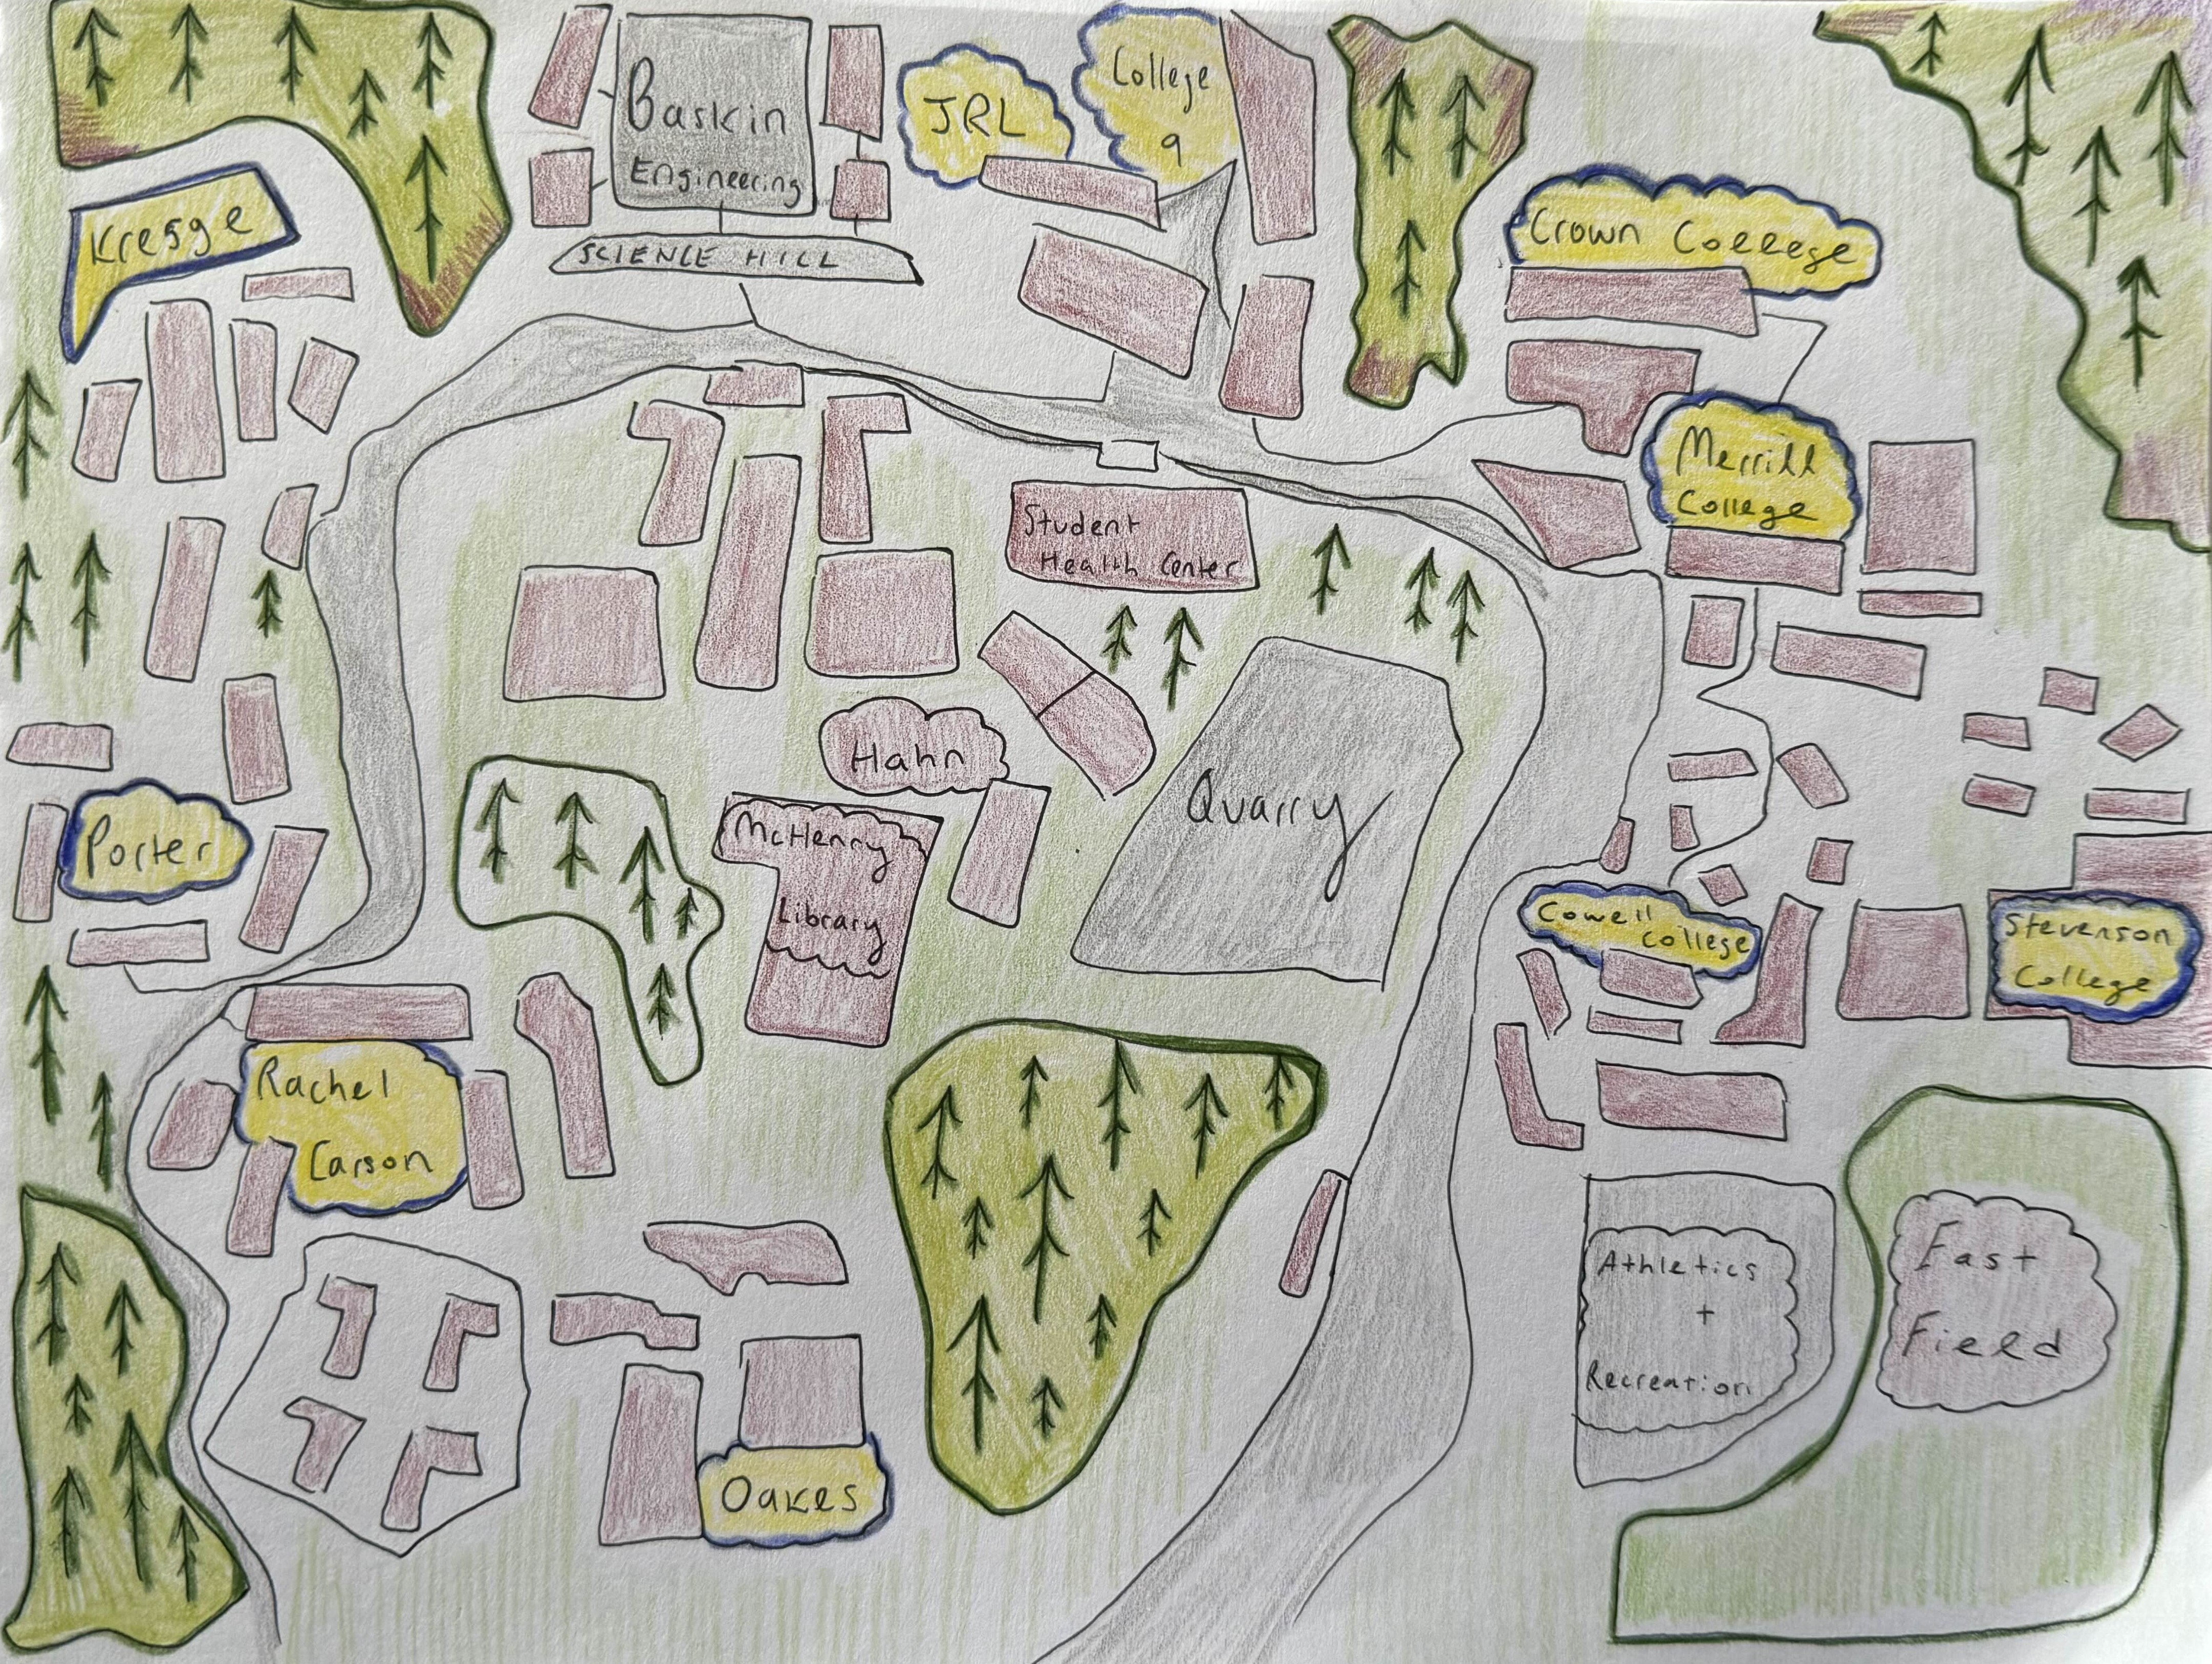 Baskin
Engineering
SCIENCE HILL
JRL
College
9
Kresge
Crown College
Merrill
College
Student
Health Center
Hahn
Quarry
McHenry
Library
Porter
Cowell
College
Stevenson
College
Rachel
Carson
Athletics
+
Recreation
East
Field
Oakes